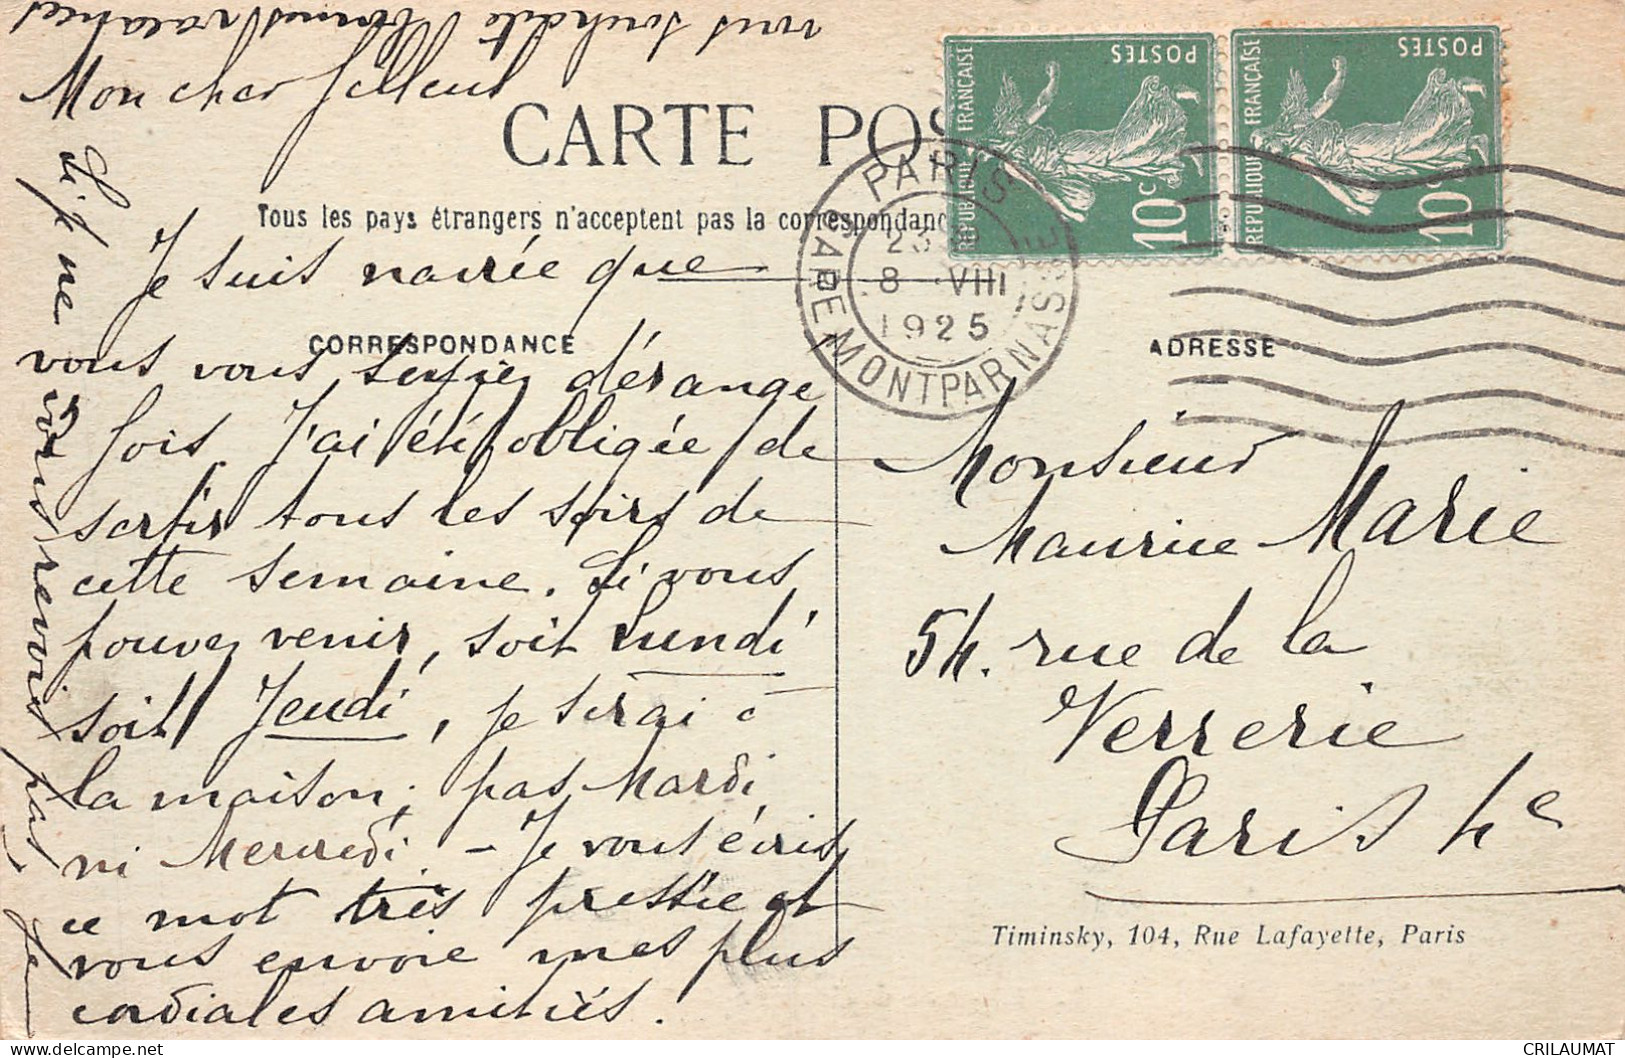 Mon cher
CARTE POS
Tous les pays étrangers n'acceptent pas la correspondanc
Je suis navrée que
CORRESPONDANCE
vous vous soyiez dérangé
fois. J'ai été obligée de
sortir tous les soirs de
cette semaine. Si vous
pouvez venir, soit lundi
soit Jeudi, je serai à
la maison; pas Mardi
ni Mercredi - Je vous écris
ce mot très pressée et
vous envoie mes plus
cordiales amitiés.
Si je ne vous revois pas, je
vous souhaite bonnes vacances
POSTES
REPUBLIQUE FRANÇAISE
10c
POSTES
REPUBLIQUE FRANÇAISE
10c
PARIS
GARE MONTPARNASSE
8 VIII
1925
ADRESSE
Monsieur
Maurice Marie
54. rue de la
Verrerie
Paris 4e
Timinsky, 104, Rue Lafayette, Paris
CRILAUMAT